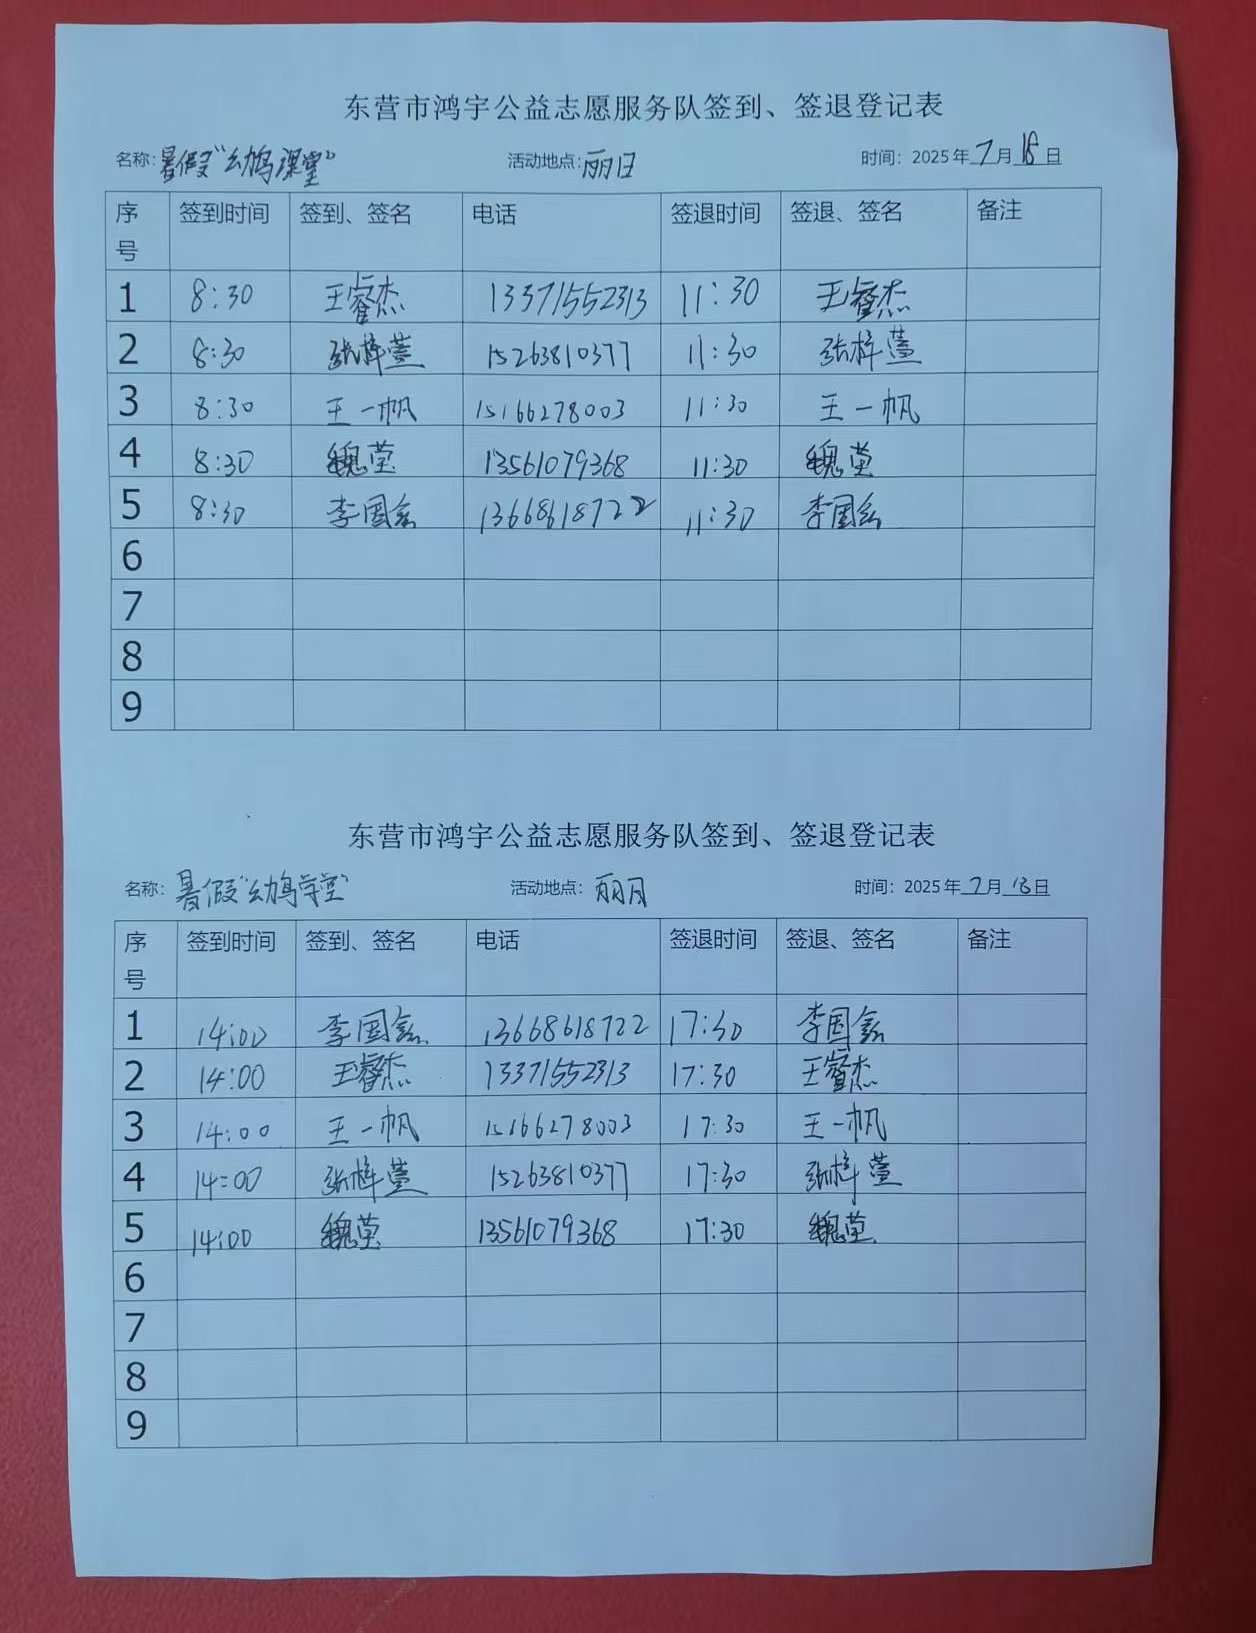 东营市鸿宇公益志愿服务队签到、签退登记表
名称：暑假"幼鸟课堂" 活动地点：丽日 时间：2025年7月18日
序号 签到时间 签到、签名 电话 签退时间 签退、签名 备注
1 8:30 王睿杰 13371552313 11:30 王睿杰
2 8:30 张梓萱 15263810377 11:30 张梓萱
3 8:30 王一帆 15166278003 11:30 王一帆
4 8:30 魏莹 13561079368 11:30 魏莹
5 8:30 李国鑫 13668618722 11:30 李国鑫
6
7
8
9
东营市鸿宇公益志愿服务队签到、签退登记表
名称：暑假"幼鸟学堂" 活动地点：丽月 时间：2025年7月18日
序号 签到时间 签到、签名 电话 签退时间 签退、签名 备注
1 14:00 李国鑫 13668618722 17:30 李国鑫
2 14:00 王睿杰 13371552313 17:30 王睿杰
3 14:00 王一帆 15166278003 17:30 王一帆
4 14:00 张梓萱 15263810377 17:30 张梓萱
5 14:00 魏莹 13561079368 17:30 魏莹
6
7
8
9